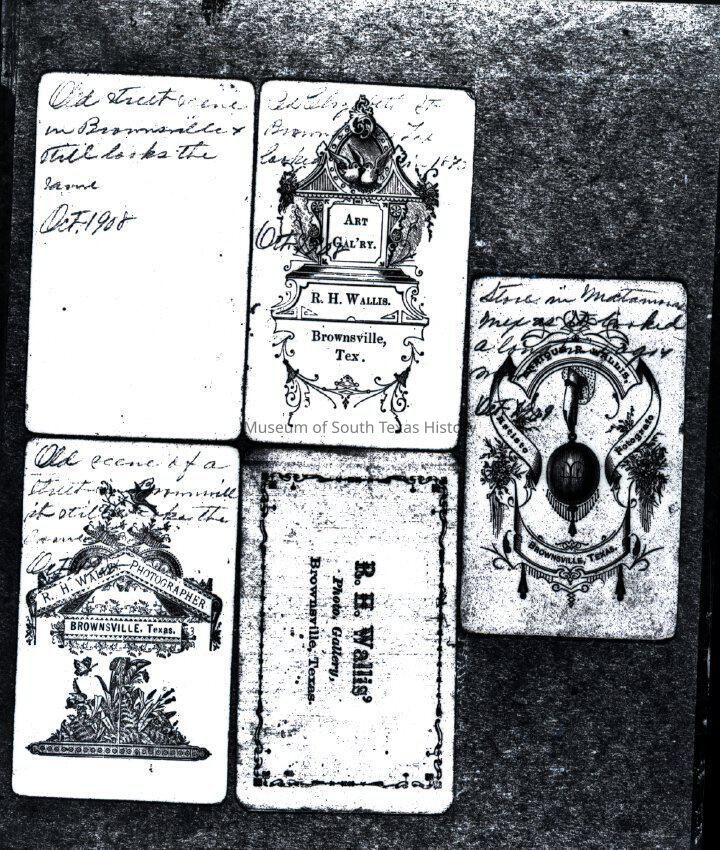 Old street scene
in Brownsville &
still looks the
same
Oct. 1908
Old Elizabeth St
Brown Tex
looked in 187
Oct.
ART
GAL'RY.
R. H. WALLIS.
Brownsville,
Tex.
Store in Matamoros
Mex as it looked
a
Oct
ENRIQUE R. WALLIS,
Retratista
Fotografo
BROWNSVILLE, TEXAS.
Museum of South Texas Histo
Old scene of a
street
it still looks the
same
Oct
R. H. WALLIS PHOTOGRAPHER
BROWNSVILLE, Texas.
R. H. Wallis'
Photo. Gallery,
Brownsville, Texas.